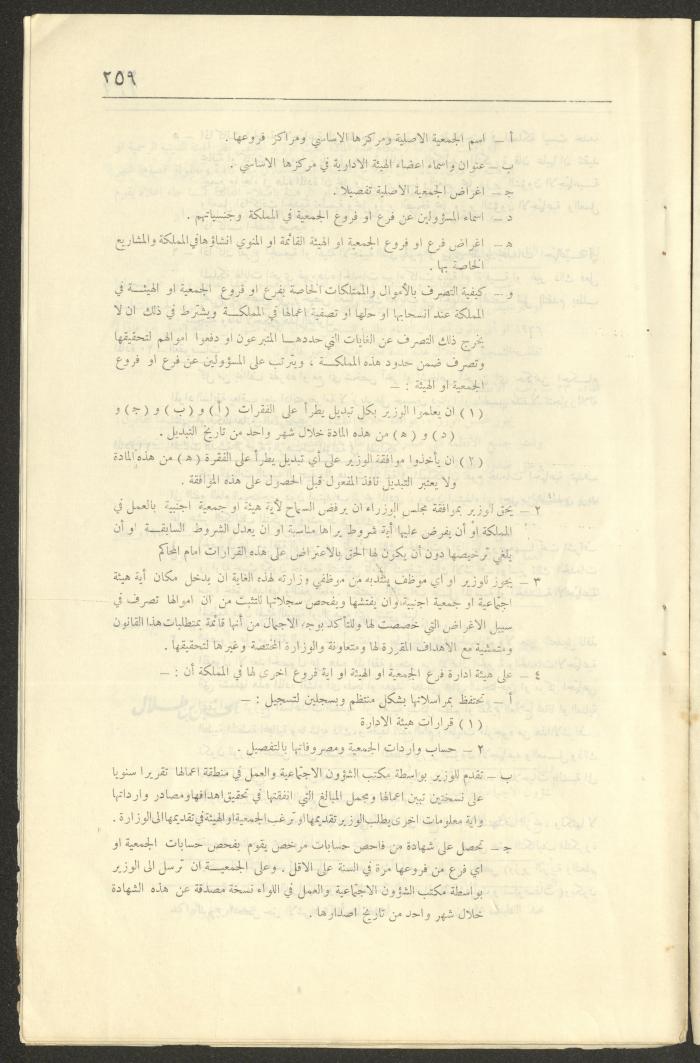 ٢٥٩
أ — اسم الجمعية الاصلية ومركزها الاساسي ومراكز فروعها .
ب — عنوان واسماء اعضاء الهيئة الادارية في مركزها الاساسي .
ج — اغراض الجمعية الاصلية تفصيلا .
د — اسماء المسؤولين عن فرع او فروع الجمعية في المملكة وجنسياتهم .
ه — اغراض فرع او فروع الجمعية او الهيئة القائمة او المنوي انشاؤها في المملكة والمشاريع
الخاصة بها .
و — كيفية التصرف بالأموال والممتلكات الخاصة بفرع او فروع الجمعية او الهيئة في
المملكة عند انسحابها او حلها او تصفية اعمالها في المملكة ويشترط في ذلك ان لا
يخرج ذلك التصرف عن الغايات التي حددها المتبرعون او دفعوا اموالهم لتحقيقها
وتصرف ضمن حدود هذه المملكة ، ويترتب على المسؤولين عن فرع او فروع
الجمعية او الهيئة : —
( ١ ) ان يعلموا الوزير بكل تبديل يطرأ على الفقرات ( أ ) و ( ب ) و ( ج ) و
( د ) و ( ه ) من هذه المادة خلال شهر واحد من تاريخ التبديل .
( ٢ ) ان يأخذوا موافقة الوزير على أي تبديل يطرأ على الفقرة ( ه ) من هذه المادة
ولا يعتبر التبديل نافذ المفعول قبل الحصول على هذه الموافقة .
٢ — يحق لوزير بموافقة مجلس الوزراء ان يرفض السماح لأية هيئة او جمعية اجنبية بالعمل في
المملكة او أن يفرض عليها أية شروط يراها مناسبة او ان يعدل الشروط السابقة او أن
يلغي ترخيصها دون أن يكون لها الحق بالاعتراض على هذه القرارات امام المحاكم
٣ — يجوز للوزير او اي موظف ينتدبه من موظفي وزارته لهذه الغاية ان يدخل مكان أية هيئة
اجتماعية او جمعية اجنبية، وان يفتشها ويفحص سجلاتها للتثبت من ان اموالها تصرف في
سبيل الاغراض التي خصصت لها وللتأكد بوجه الاجمال من أنها قائمة بمتطلبات هذا القانون
ومتمشية مع الاهداف المقررة لها ومتعاونة والوزارة المختصة وغيرها لتحقيقها .
٤ — على هيئة ادارة فرع الجمعية او الهيئة او اية فروع اخرى لها في المملكة أن : —
أ — تحتفظ بمراسلاتها بشكل منتظم وبسجلين لتسجيل : —
( ١ ) قرارات هيئة الادارة
٢ — حساب واردات الجمعية ومصروفاتها بالتفصيل .
ب — تقدم للوزير بواسطة مكتب الشؤون الاجتماعية والعمل في منطقة اعمالها تقريرا سنويا
على نسختين تبين اعمالها ومجمل المبالغ التي انفقتها في تحقيق اهدافها ومصادر وارداتها
واية معلومات اخرى يطلب الوزير تقديمها او ترغب الجمعية او الهيئة في تقديمها الى الوزارة .
ج — تحصل على شهادة من فاحص حسابات مرخص يقوم بفحص حسابات الجمعية او
اي فرع من فروعها مرة في السنة على الاقل . وعلى الجمعية ان ترسل الى الوزير
بواسطة مكتب الشؤون الاجتماعية والعمل في اللواء نسخة مصدقة عن هذه الشهادة
خلال شهر واحد من تاريخ اصدارها .